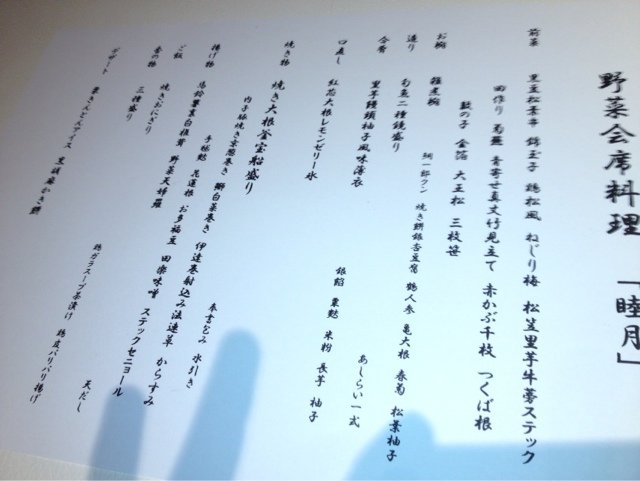 野菜会席料理 「睦月」
前菜 黒豆松葉串 錦玉子 鶏松風 ねじり梅 松笠里芋牛蒡ステック
田作り 菊蕪 青寄せ真丈竹見立て 赤かぶ千枚 つくば根
数の子 金箔 大王松 三枚笹
お椀 雑煮椀 焼き餅銀杏豆腐 鶴人参 亀大根 春菊 松葉柚子
造り 旬魚二種鏡盛り あしらい一式
合肴 里芋饅頭柚子風味薄衣 銀餡 粟麩 米粉 長芋 柚子
口直し 紅芯大根レモンゼリー氷
焼き物 焼き大根釜宝船盛り
手毬麩 花蓮根 お多福豆 田楽味噌 ステックセニョール
揚げ物 馬鈴薯裏白椎茸 野菜天婦羅 天だし
ご飯 焼きおにぎり 鶏ガラスープ茶漬け 鶏皮パリパリ揚げ
香の物 三種盛り
デザート 栗きんとんアイス 黒胡麻かき餅